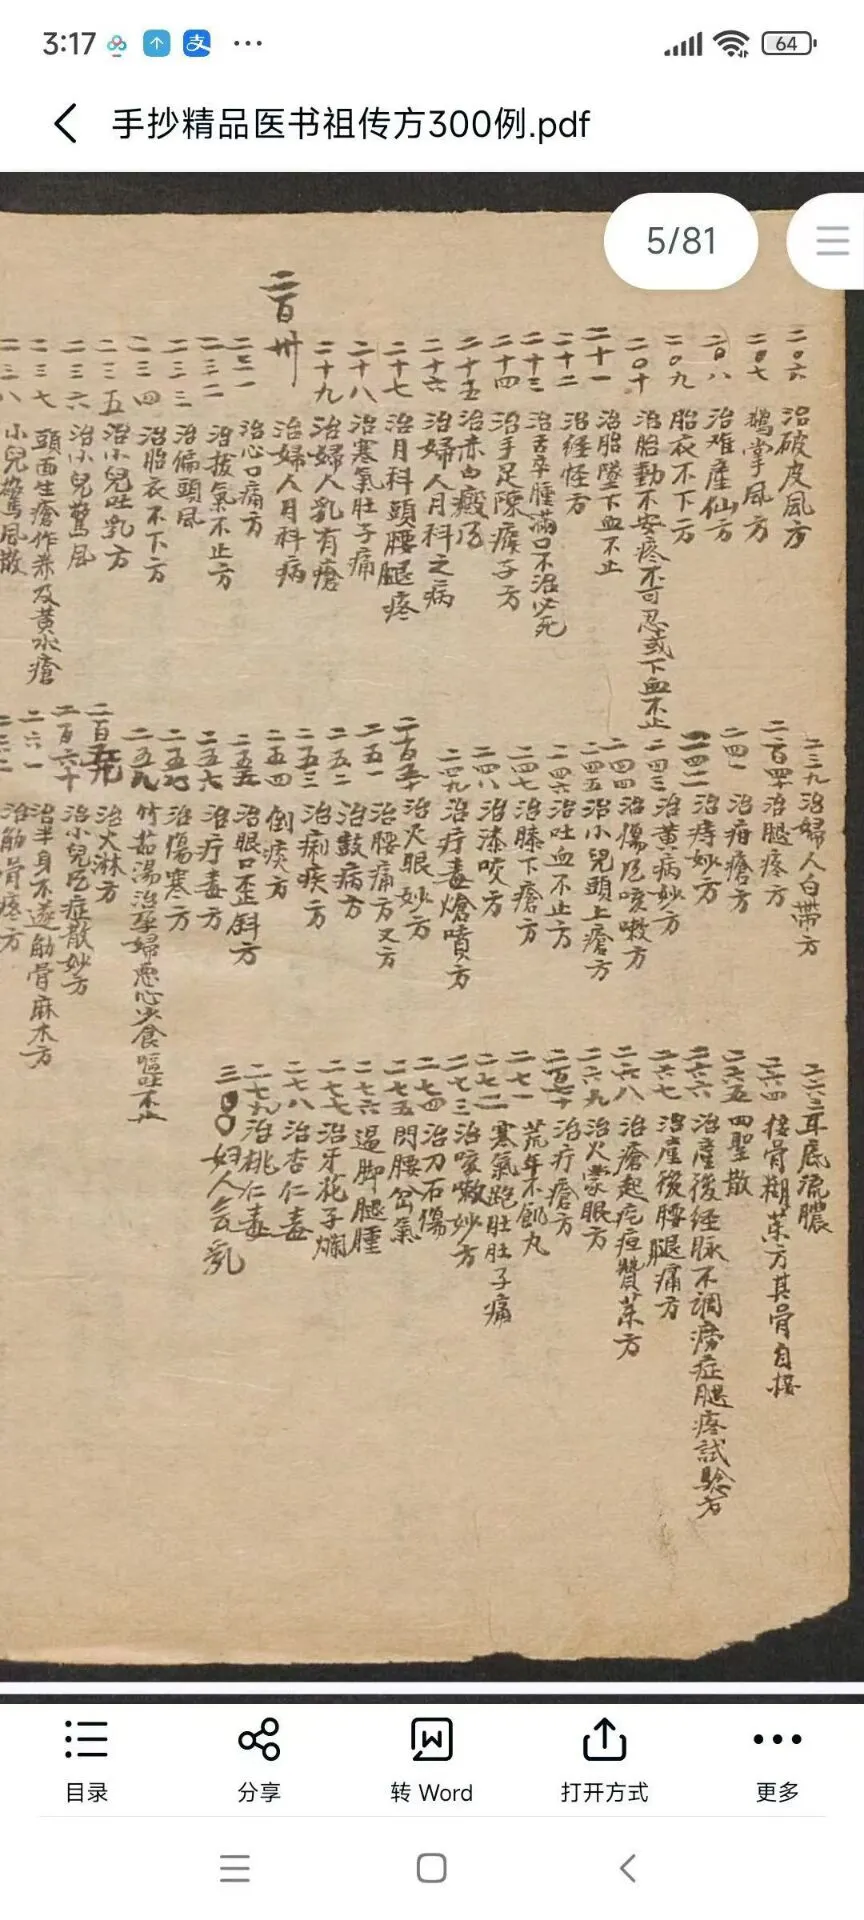 3:17
64
手抄精品医书祖传方300例.pdf
5/81
二〇六 治破皮風方
二〇七 鵝掌風方
二〇八 治难產仙方
二〇九 胎衣不下方
二〇十 治胎動不安疼不可忍或下血不止
二十一 治胎墜下血不止
二十二 治经怪方
二十三 治舌卒腫滿口不治必死
二十四 治手足隙瘊子方
二十五 治赤白癜方
二十六 治婦人月科之病
二十七 治月科頭腰腿疼
二十八 治寒氣肚子痛
二十九 治婦人乳有瘡
二百卅 治婦人月科病
二三一 治心口痛方
二三二 治拔氣不止方
二三三 治偏頭風
二三四 治胎衣不下方
二三五 治小兒吐乳方
二三六 治小兒驚風
二三七 頭面生瘡作养及黄水瘡
二三八 小兒驚風散
二三九 治婦人白帶方
二百四十 治腿疼方
二四一 治疳瘡方
二四二 治痔妙方
二四三 治黄病妙方
二四四 治傷风咳嗽方
二四五 治小兒頭上瘡方
二四六 治吐血不止方
二四七 治膝下瘡方
二四八 治漆咬方
二四九 治疔毒熗噴方
二百五十 治火眼妙方
二五一 治腰痛方又方
二五二 治鼓病方
二五三 治痢疾方
二五四 倒痰方
二五五 治眼口歪斜方
二五六 治疔毒方
二五七 治傷寒方
二五八 竹茹湯治孕婦悪心少食嘔吐不止
二百五九 治火淋方
二百六十 治小兒风症散妙方
二六一 治半身不遂筋骨麻木方
二六二 治筋骨疼方
二六三 耳底流膿
二六四 接骨糊葯方其骨自接
二六五 四聖散
二六六 治產後经脉不調癆症腿疼試驗方
二六七 治產後腰腿痛方
二六八 治瘡起疙疸贊葯方
二六九 治火蒙眼方
二百七十 治疔瘡方
二七一 荒年不飢丸
二七二 寒氣跑肚肚子痛
二七三 治咳嗽妙方
二七四 治刀石傷
二七五 閃腰岔氣
二七六 過脚腿腫
二七七 治牙花子爛
二七八 治杏仁毒
二七九 治桃仁毒
三〇〇 妇人会乳
目录
分享
转 Word
打开方式
更多